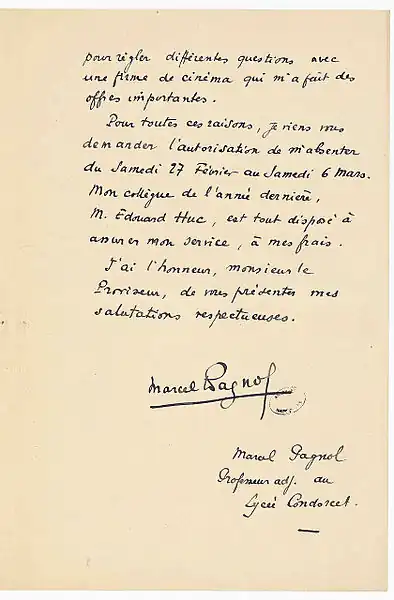 pour règler différentes questions avec
une firme de cinéma qui m'a fait des
offres importantes.
Pour toutes ces raisons, je viens vous
demander l'autorisation de m'absenter
du Samedi 27 Février au Samedi 6 Mars.
Mon collègue de l'année dernière,
M. Edouard Huc, est tout disposé à
assurer mon service, à mes frais.
J'ai l'honneur, monsieur le
Proviseur, de vous présenter mes
salutations respectueuses.
Marcel Pagnol
Marcel Pagnol
Professeur adj. au
Lycée Condorcet.